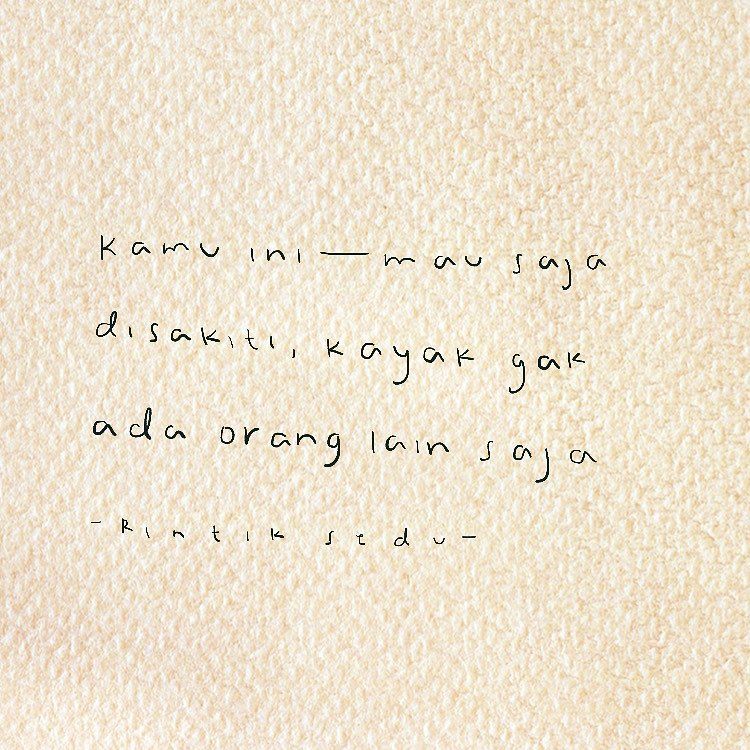 kamu ini — mau saja
disakiti, kayak gak
ada orang lain saja
- Rintik sedu -